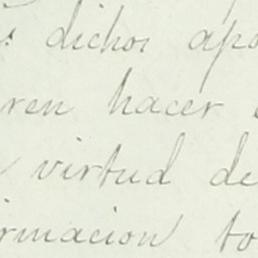 s. dichos apo
ren hacer
virtud de
irmacion to